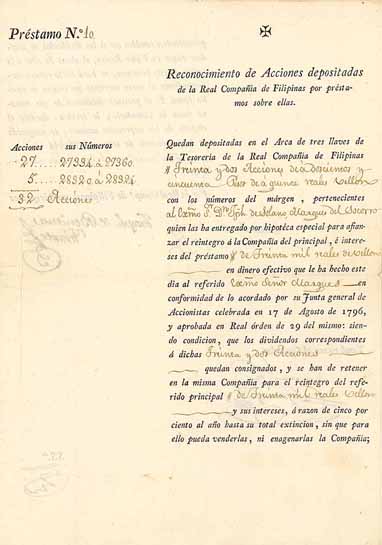 Préstamo N.º 10
✠
Reconocimiento de Acciones depositadas
de la Real Compañía de Filipinas por présta-
mos sobre ellas.
Acciones sus Números
27 27334 á 27360
5 28320 á 28324
32 Acciones
Quedan depositadas en el Arca de tres llaves de
la Tesorería de la Real Compañía de Filipinas
Treinta y dos Acciones de á doscientos y
cincuenta Pesos de á quince reales Vellon
con los números del márgen, pertenecientes
al Exmo Sr. Dn Jph. de Solano Marques del Socorro
quien las ha entregado por hipoteca especial para afian-
zar el reintegro á la Compañía del principal, é intere-
ses del préstamo de Treinta mil reales de Vellon
en dinero efectivo que le ha hecho este
dia al referido Exmo Señor Marques en
conformidad de lo acordado por su Junta general de
Accionistas celebrada en 17 de Agosto de 1796,
y aprobada en Real órden de 29 del mismo: sien-
do condicion, que los dividendos correspondientes
á dichas Treinta y dos Acciones
quedan consignados, y se han de retener
en la misma Compañía para el reintegro del refe-
rido principal de Treinta mil reales Vellon
y sus intereses, á razon de cinco por
ciento al año hasta su total extincion, sin que para
ello pueda venderlas, ni enagenarlas la Compañía;